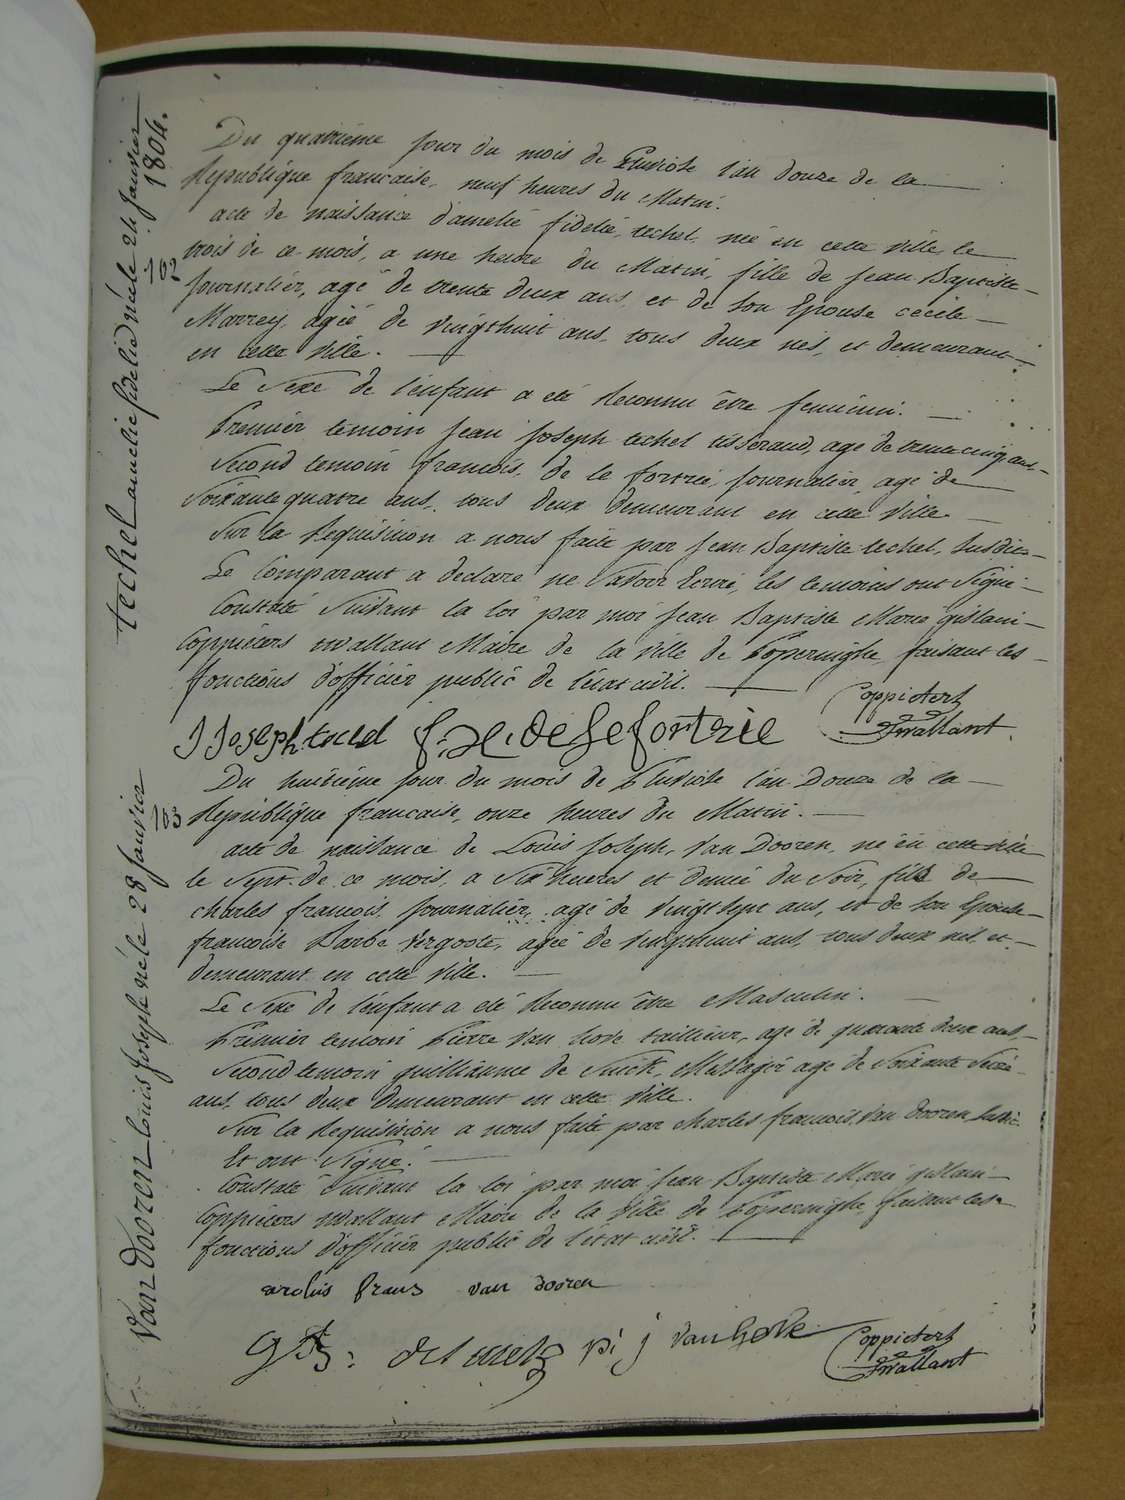 techel amelie fidelie née le 24 Janvier 1804.
102
Du quatrième jour du mois de Pluviose l'an douze de la
Republique francaise, neuf heures du Matin.
acte de naissance d'amelie fidelie, techel, née en cette ville, le
trois de ce mois, a une heure du Matin, fille de Jean Baptiste
Journalier, agé de trente deux ans, et de son Epouse cécile
Marrey, agée de vingthuit ans, tous deux nés, et demeurant
en cette ville.
Le Sexe de l'enfant a été Reconnu être feminin.
Premier temoin Jean Joseph techel tisserand, agé de trente cinq ans,
Second temoin francois, de le fortrie, Journalier, agé de
Soixante quatre ans, tous deux demeurant en cette Ville
Sur la Requisition a nous faite par Jean Baptiste techel, Susdit
Le Comparant a declaré ne Savoir Ecrire, les temoins ont Signé
Constaté Suivant la loi par moi Jean Baptiste Marie gislain
Coppieters wallant Maire de la ville de Poperinghe, faisant les
fonctions d'officier public de l'état civil.
J Joseph techel f: x. de le fortrie Coppieters
Wallant
Van Dooren Louis Joseph né le 28 Janvier
103
Du huitième jour du mois de Pluviose l'an Douze de la
Republique francaise, onze heures du Matin.
acte de naissance de Louis Joseph, Van Dooren, né en cette ville
le Sept de ce mois, a Six heures et demie du Soir, fils de
charles francois, Journalier, agé de vingt sept ans, et de son Epouse
francoise Barbe Vergoote, agée de vingthuit ans, tous deux nés, et
demeurant en cette ville.
Le Sexe de l'enfant a été Reconnu être Masculin.
Premier temoin Pierre Van Hove tailleur, agé de quarante deux ans,
Second temoin guilliaume de Smet, Messager agé de Soixante
ans, tous deux demeurant en cette Ville.
Sur la Requisition a nous faite par Charles francois, Van Dooren, Susdit
Et ont Signé.
Constaté Suivant la loi par moi Jean Baptiste Marie gislain
Coppieters wallant Maire de la Ville de Poperinghe, faisant les
fonctions d'officier public de l'état civil.
carolus frans van dooren
pi j van hove Coppieters
Wallant